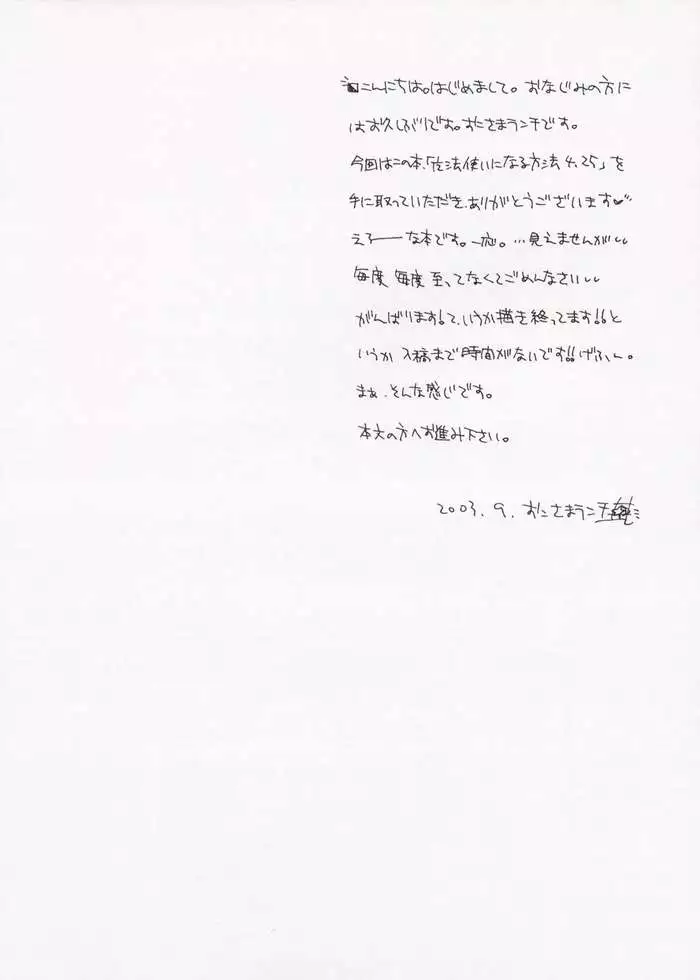 こんにちは。はじめまして。おなじみの方に
はお久しぶりです。おにさまランチです。
今回はこの本、「法使いになる方法4.25」を
手に取っていただき、ありがとうございます♥
えろーーな本です。一応。…見えませんが
毎度毎度至ってなくてごめんなさい
がんばります!て、いうか描き終ってます!!と
いうか入稿まで時間がないです!!げふん。
まぁ、そんな感じです。
本文の方へお進み下さい。
2003.9.おにさまランチ